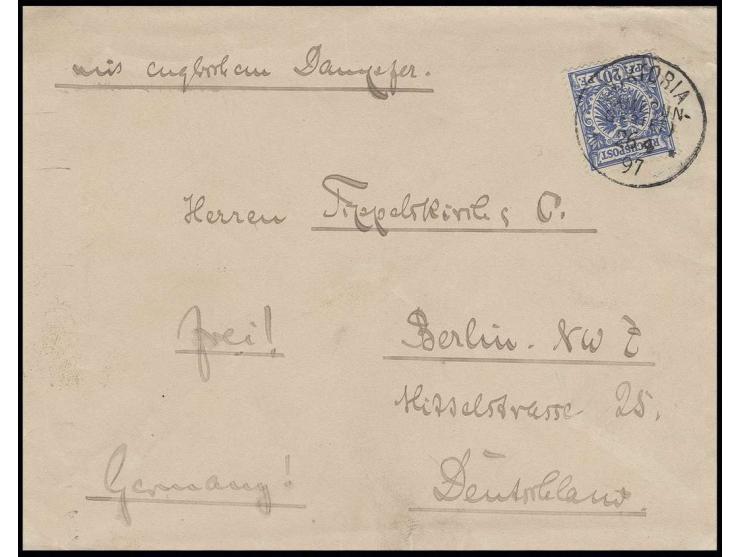 mit englischem Dampfer.
20 PF
REICHSPOST
VICTORIA
26
97
Herren Tippelskirch & C.
frei!
Berlin. NW 7
Mittelstrasse 25.
Germany!
Deutschland.